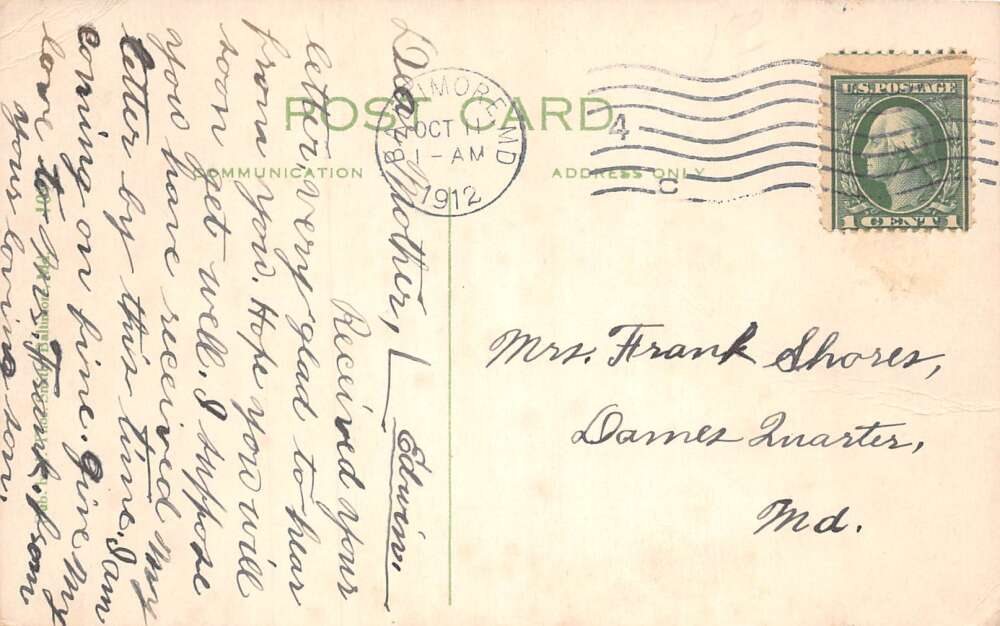 POST CARD
COMMUNICATION
ADDRESS ONLY
BALTIMORE, MD
OCT 11
1-AM
1912
4
C
U.S. POSTAGE
1 CENT 1
Mrs. Frank Shores,
Dames Quarter,
Md.
Dear Mother,
Received your
letter, very glad to hear
from you. Hope you will
soon get well. I suppose
you have received my
letter by this time. I am
coming on fine. Give My
love to Mrs. Frank. From
your loving son.
Edwin.